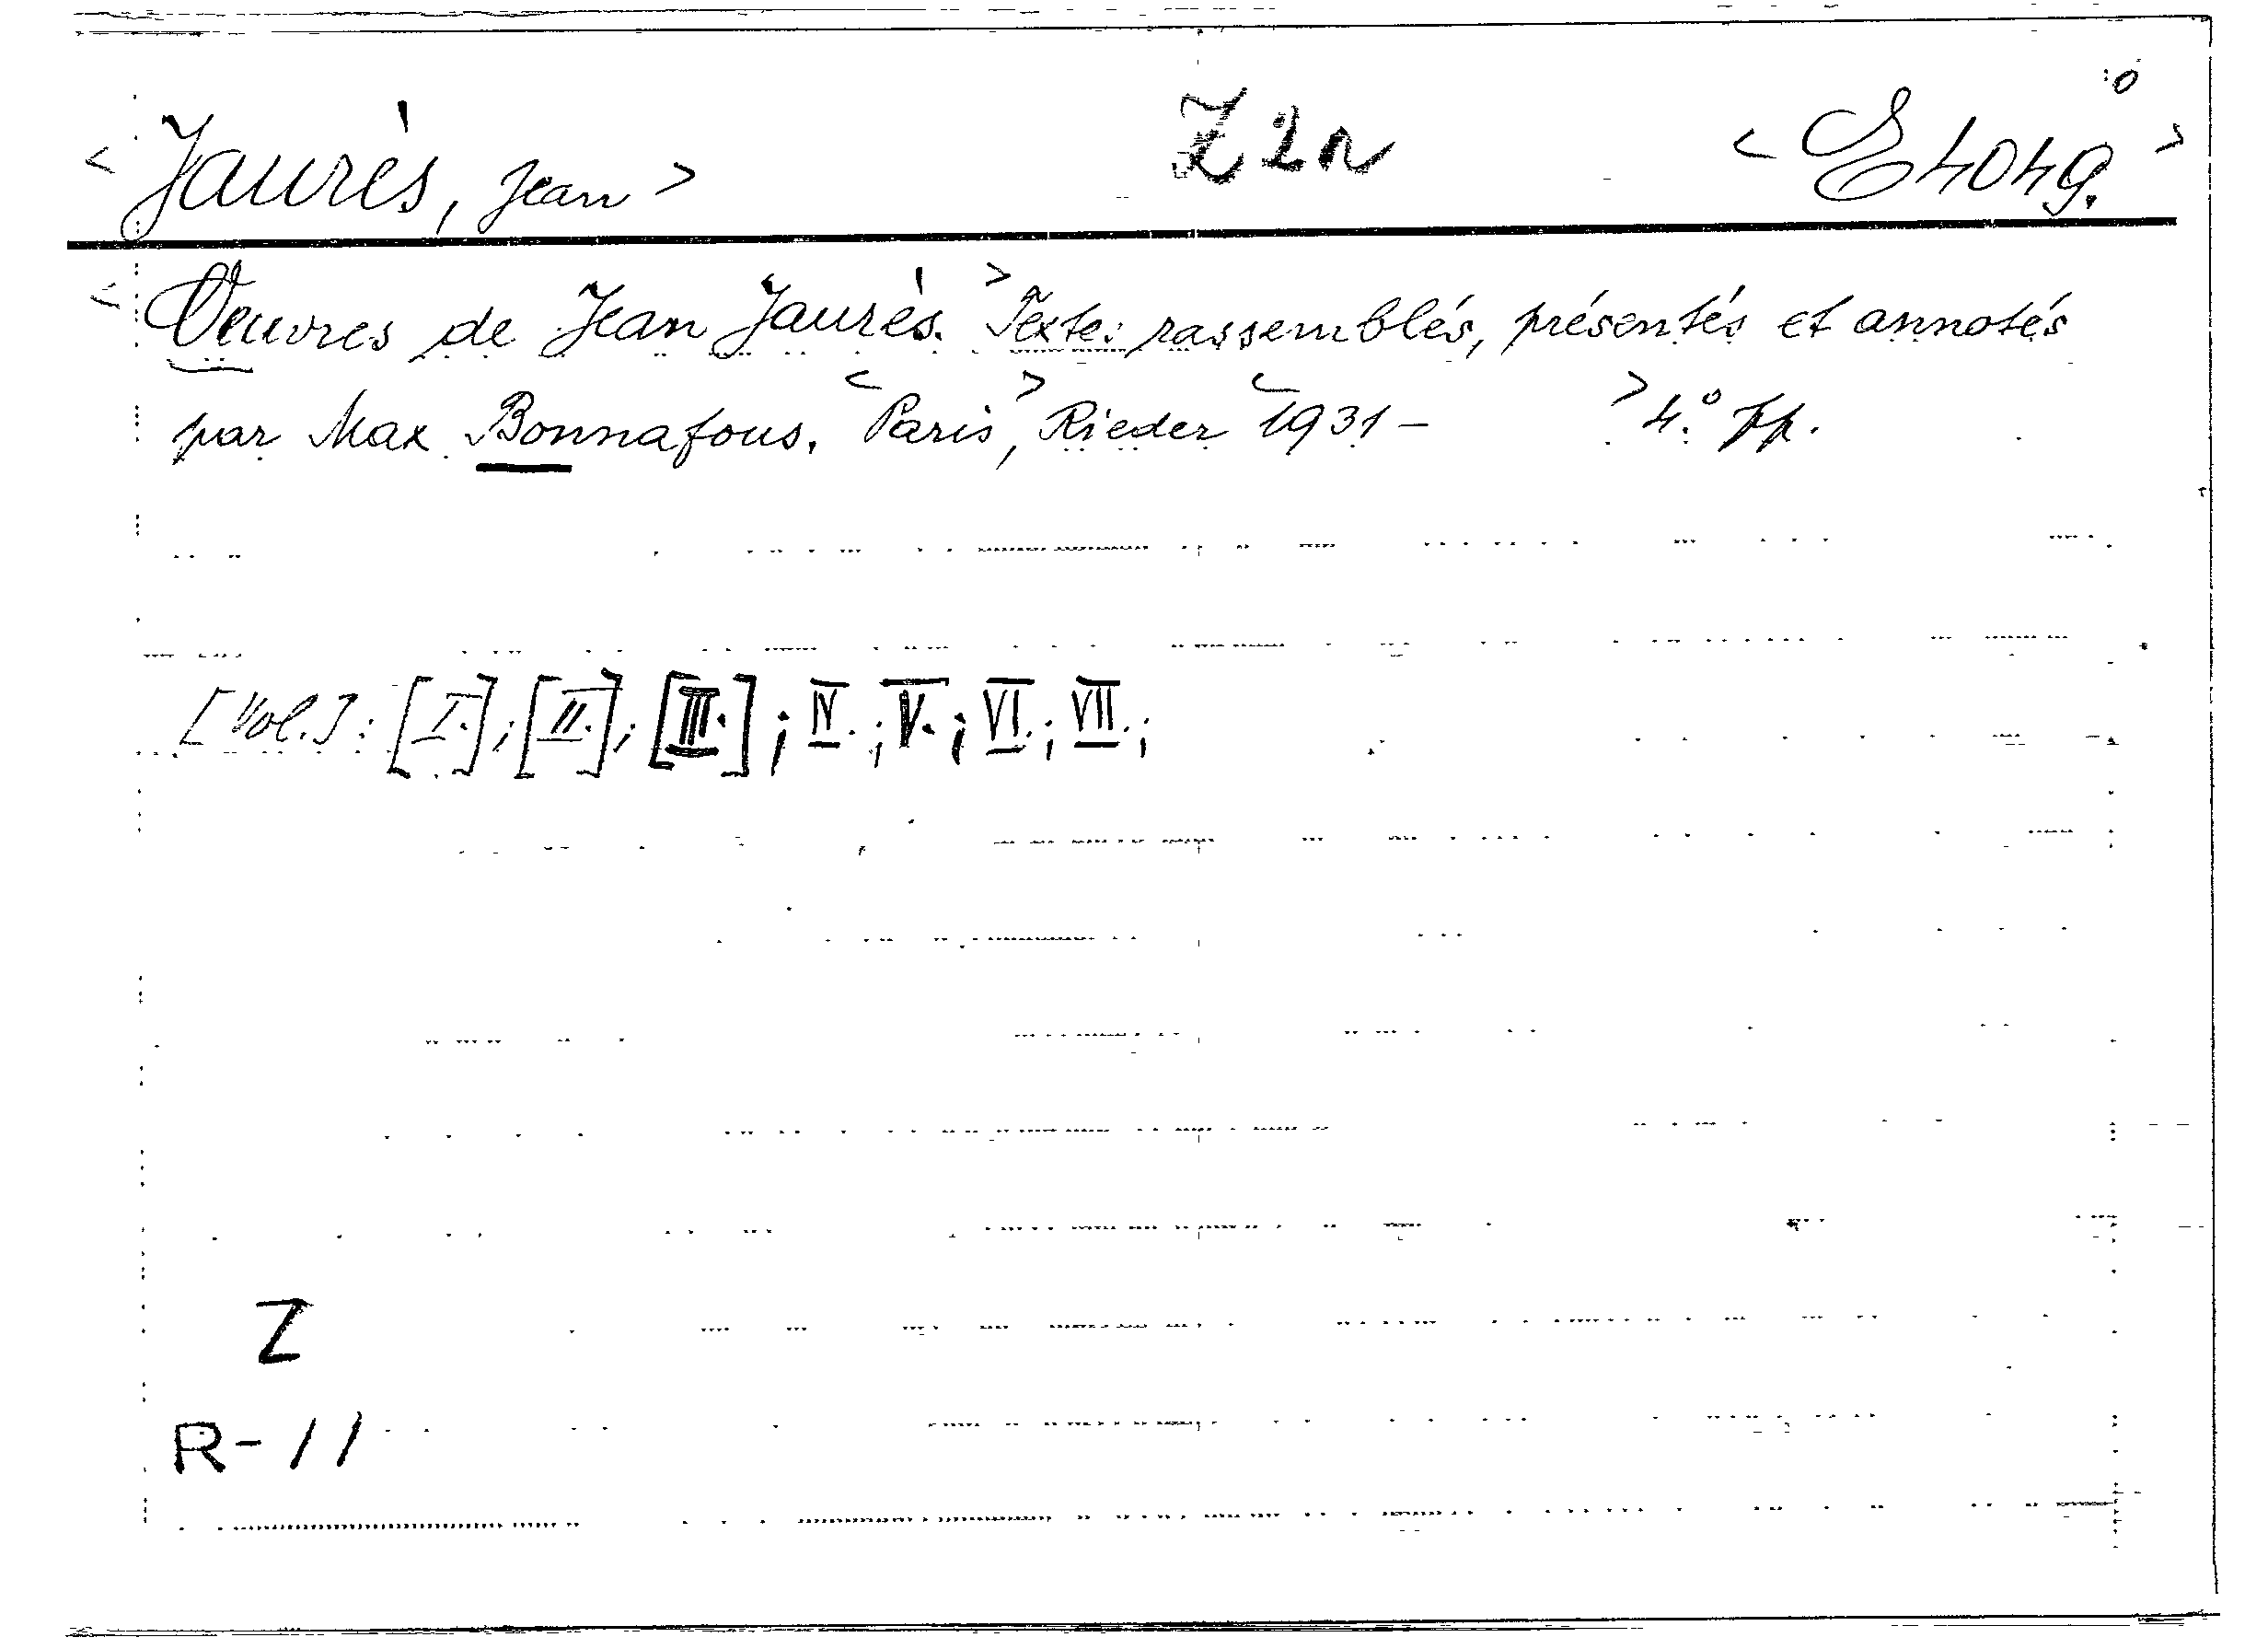 < Jaurès, Jean > Z2r < E4049. >
< Oeuvres de Jean Jaurès. > Textes rassemblés, présentés et annotés
par Max Bonnafous. < Paris >, Rieder < 1931 - > 4.°
[Vol.]: [I.]; [II.]; [III.]; IV.; V.; VI.; VII.;
Z
R-11